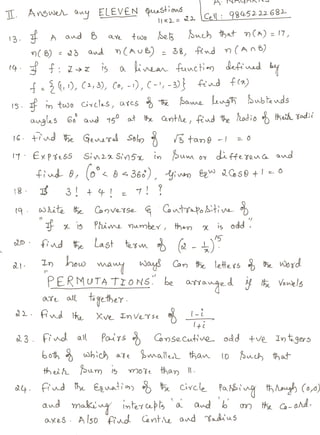 II. Answer any ELEVEN questions
11×2 = 22
Cell : 9845222682
13. If A and B are two sets such that n(A) = 17,
n(B) = 23 and n(A∪B) = 38, find n(A∩B)
14. If f : Z→Z is a linear function defined by
f = {(1,1), (2,3), (0,-1), (-1,-3)} find f(x)
15. If in two circles, arcs of the same length subtends
angles 60° and 75° at the centre, find the Ratio of their radii
16. Find the General Soln of √3 tanθ - 1 = 0
17. Express Sin2x Sin5x in Sum or difference and
find θ, (0° < θ < 360°), given 2Cosθ + 1 = 0
18. Is 3! + 4! = 7! ?
19. write the Converse & Contrapositive of
"If x is Prime number, then x is odd"
20. Find the Last term of (2 - 1/x)^15
21. In how many ways Can the letters of the word
"PERMUTATIONS" be arranged if the vowels
are all together.
22. Find the xve Inverse of 1-i/1+i
23. Find all Pairs of Consecutive odd +ve Integers
both of which are Smaller than 10 Such that
their Sum is more than 11.
24. Find the Equation of the Circle Passing through (0,0)
and making intercepts 'a' and 'b' on the Co-ord.
axes. Also find Centre and radius